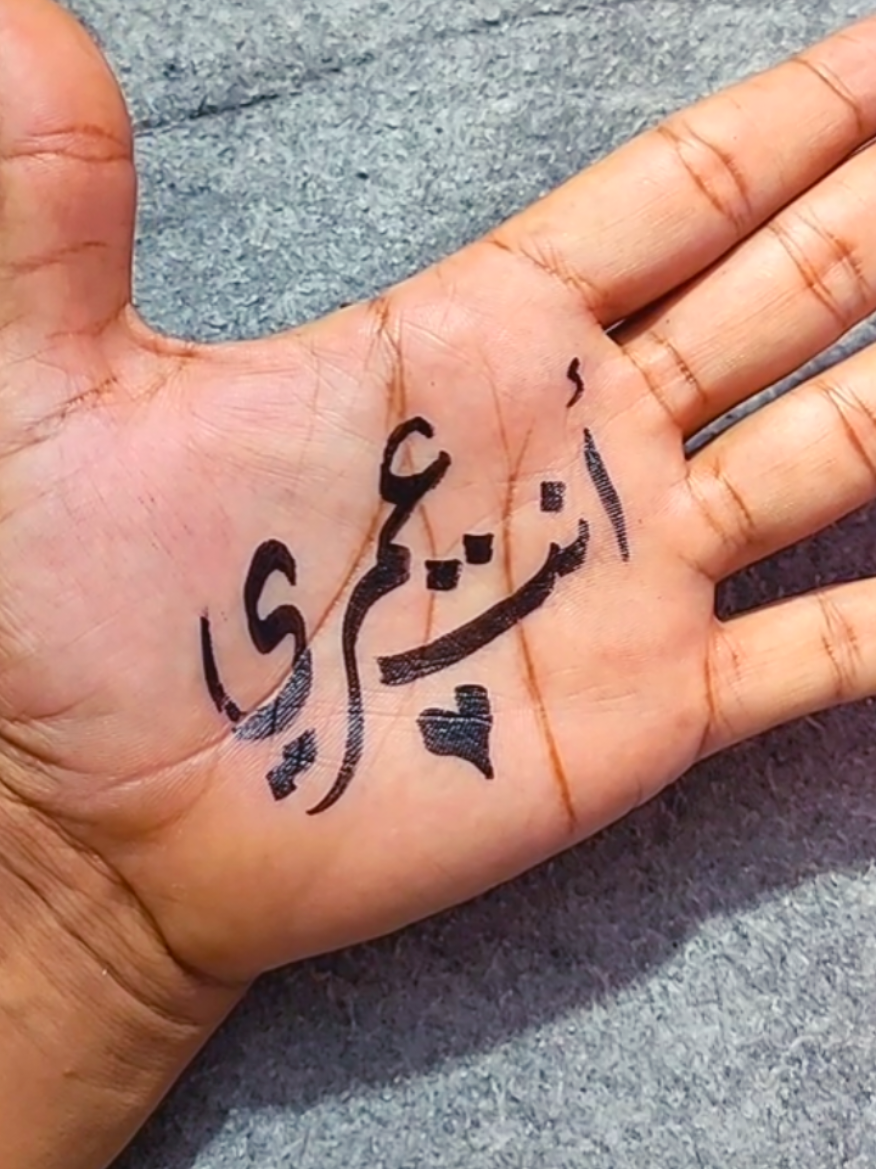 أنت عمري